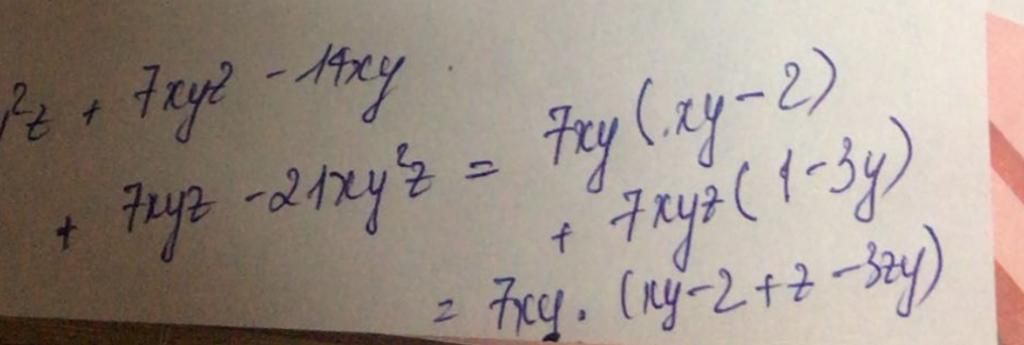 ²z + 7xyz - 14xy
+ 7xyz - 21xy²z = 7xy (xy - 2)
+ 7xyz (1 - 3y)
= 7xy . (xy - 2 + z - 3zy)